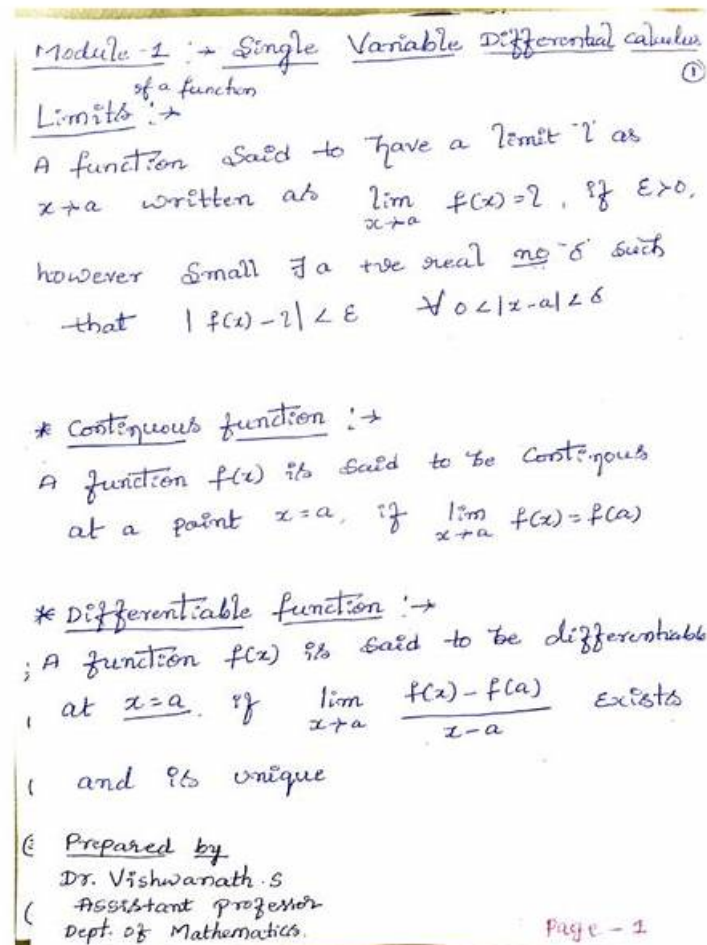 Module-1 :→ Single Variable Differential calculus
①
of a function
Limits :→
A function said to have a limit 'l' as
x→a written as lim x→a f(x)=l, if ε>0,
however small ∃ a +ve real no 'δ' such
that |f(x)-l|<ε ∀ 0<|x-a|<δ
* Continuous function :→
A function f(x) is said to be continous
at a point x=a, if lim x→a f(x)=f(a)
* Differentiable function :→
A function f(x) is said to be differentiable
at x=a. if lim x→a f(x)-f(a) / x-a exists
and is unique
Prepared by
Dr. Vishwanath.S
Assistant professor
Dept. of Mathematics.
Page - 1